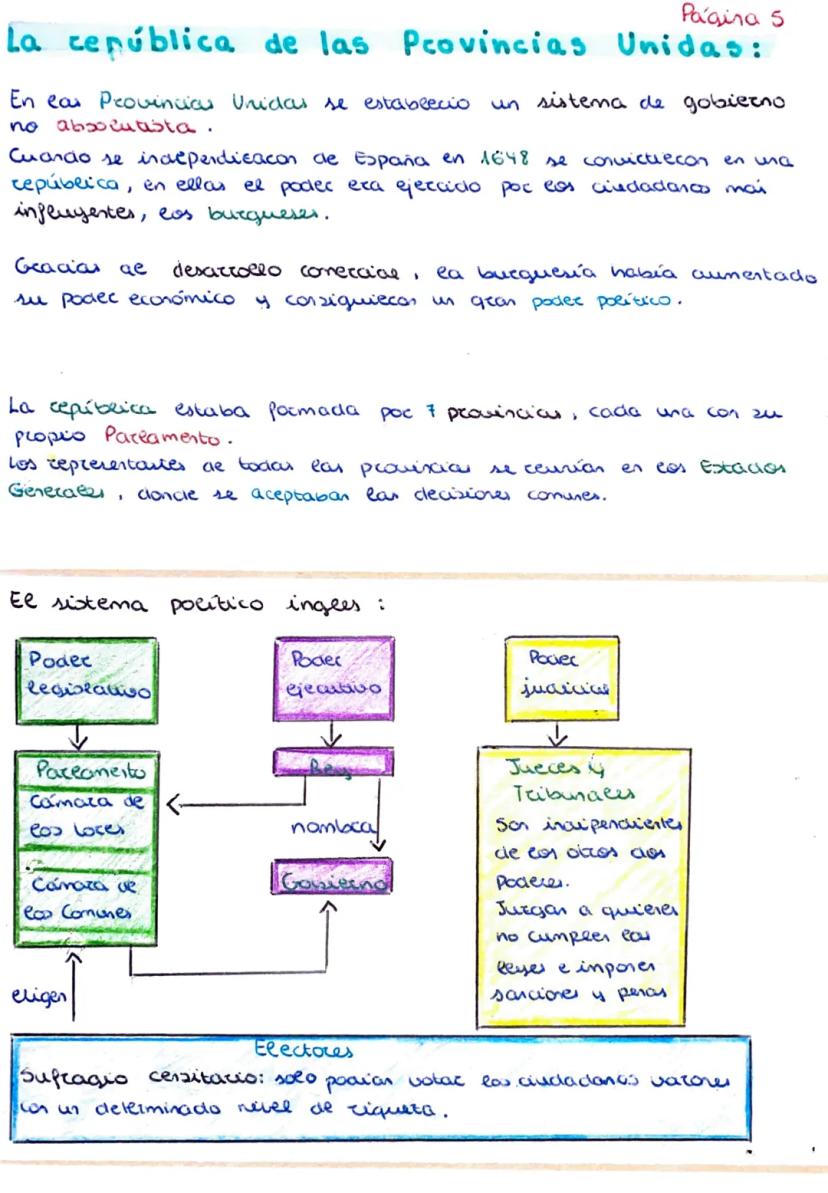 Página 5
La república de las Provincias Unidas:
En las Provincias Unidas se estableció un sistema de gobierno
no absolutista.
Cuando se independizaron de España en 1648 se convirtieron en una
república, en ellas el poder era ejercido por los ciudadanos más
influyentes, los burgueses.
Gracias al desarrollo comercial, la burguesía había aumentado
su poder económico y consiguieron un gran poder político.
La república estaba formada por 7 provincias, cada una con su
propio Parlamento.
Los representantes de todas las provincias se reunían en los Estados
Generales, donde se aceptaban las decisiones comunes.
El sistema político ingles:
Poder
legislativo
Poder
ejecutivo
Poder
judicial
Parlamento
Cámara de
los Lores
Cámara de
los Comunes
Rey
nombra
Gobierno
Jueces y
Tribunales
Son indipendientes
de los otros dos
Poderes.
Juzgan a quienes
no cumplen las
leyes e imponen
sanciones y penas
eligen
Electores
Sufragio censitario: solo podían votar los ciudadanos varones
con un determinado nivel de riqueza.